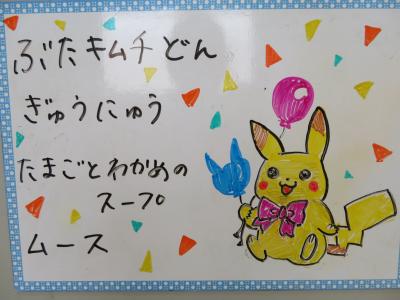 ぶたキムチどん
ぎゅうにゅう
たまごとわかめの
スープ
ムース